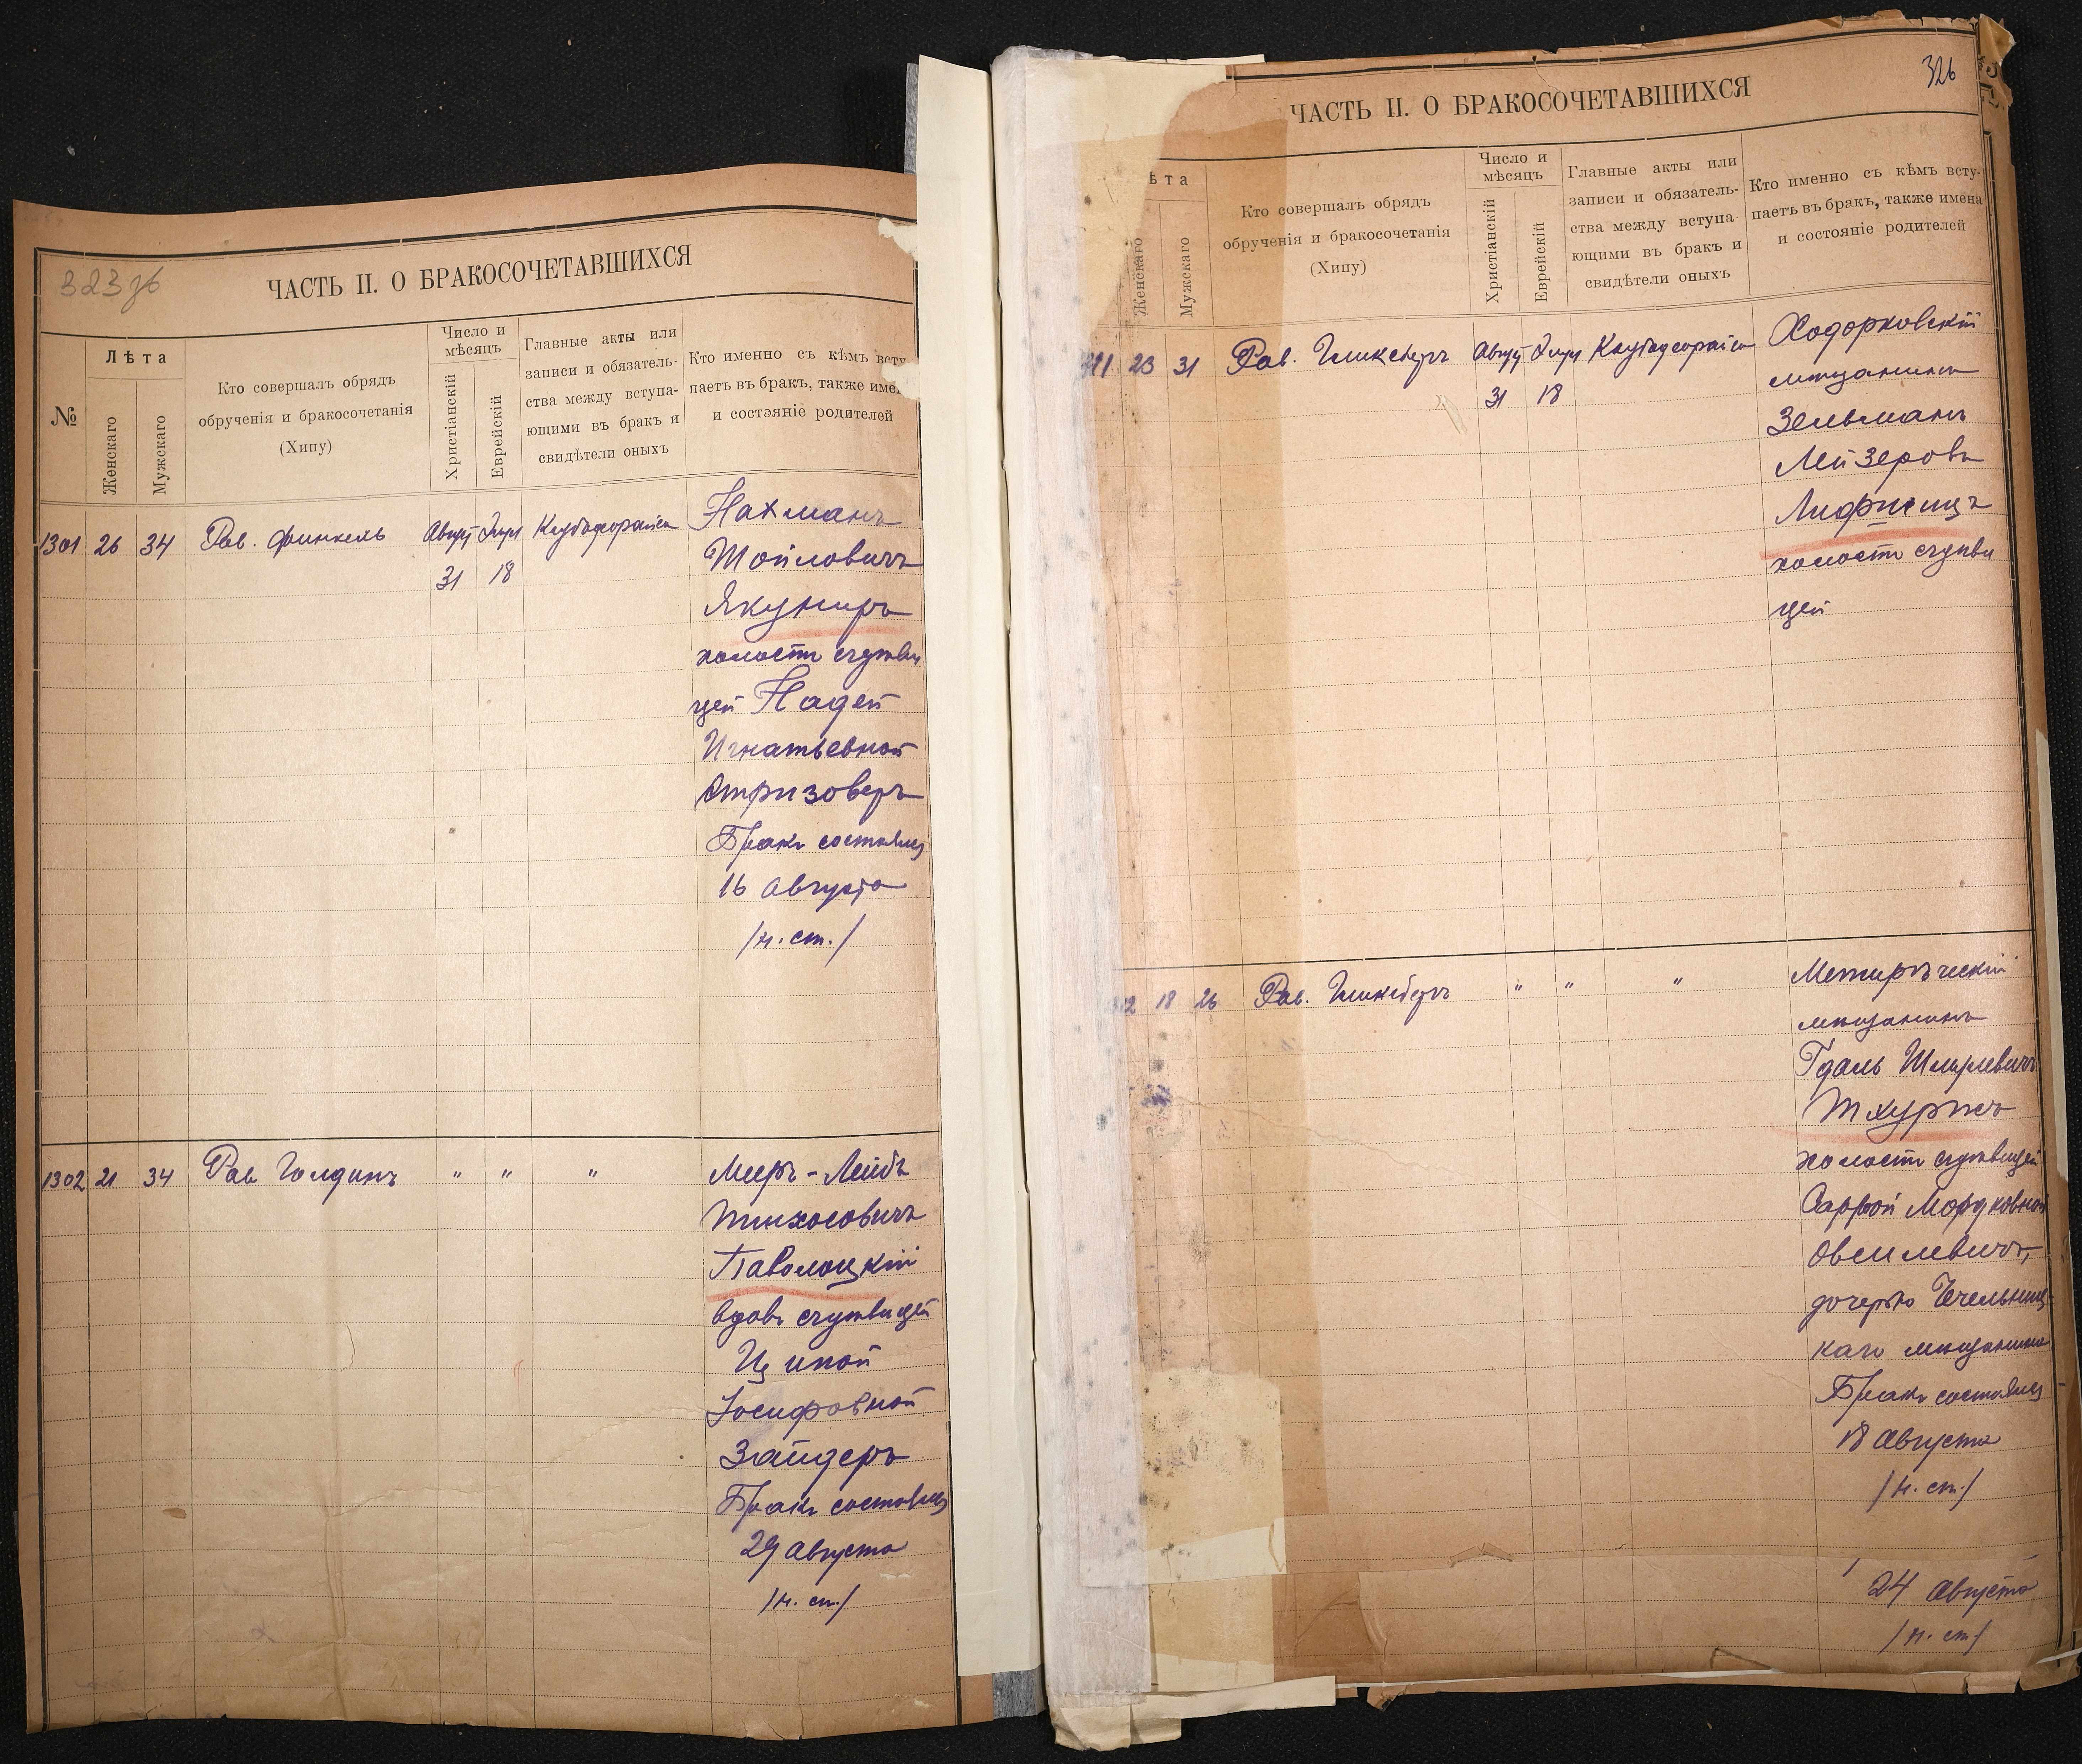 323 зб
ЧАСТЬ II. О БРАКОСОЧЕТАВШИХСЯ
№
Лѣта
Женскаго
Мужскаго
Кто совершалъ обрядъ
обрученія и бракосочетанія
(Хипу)
Число и
мѣсяцъ
Христіанскій
Еврейскій
Главные акты или
записи и обязатель-
ства между вступа-
ющими въ бракъ и
свидѣтели оныхъ
Кто именно съ кѣмъ всту
паетъ въ бракъ, также име
и состояніе родителей
1301 26 34 Рав. Финкель Август Элул
31 18
Нахманъ
Шойловичъ
Якуниръ
холостъ съ дѣви
цей Надей
Игнатьевной
Стризоверъ
Бракъ состоялся
16 Августа
/н. ст./
1302 21 34 Рав Голдинъ " " "
Мееръ-Лейбъ
Пинхосовичъ
Паволоцкій
вдовъ съ дѣвицей
Ципой
Іосифовной
Зайдеръ
Бракъ состоялся
29 Августа
/н. ст./
326
ЧАСТЬ II. О БРАКОСОЧЕТАВШИХСЯ
ѣта
Женскаго
Мужскаго
Кто совершалъ обрядъ
обрученія и бракосочетанія
(Хипу)
Число и
мѣсяцъ
Христіанскій
Еврейскій
Главные акты или
записи и обязатель-
ства между вступа-
ющими въ бракъ и
свидѣтели оныхъ
Кто именно съ кѣмъ всту-
паетъ въ бракъ, также имена
и состояніе родителей
23 31 Рав. Гликсбергъ Август Элул
31 18
Ходорковскій
мѣщанинъ
Зельманъ
Лейзеровъ
Лифшицъ
холостъ съ дѣви
цей
18 26 Рав. Гликсбергъ " " "
Межирѣческій
мѣщанинъ
Гдаль Шмулевичъ
холостъ съ дѣвицей
Саррой Мордковной
Овсилевичъ,
дочерью Чечельниц-
каго мѣщанина
Бракъ состоялся
18 Августа
/н. ст./
24 Августа
/н. ст./